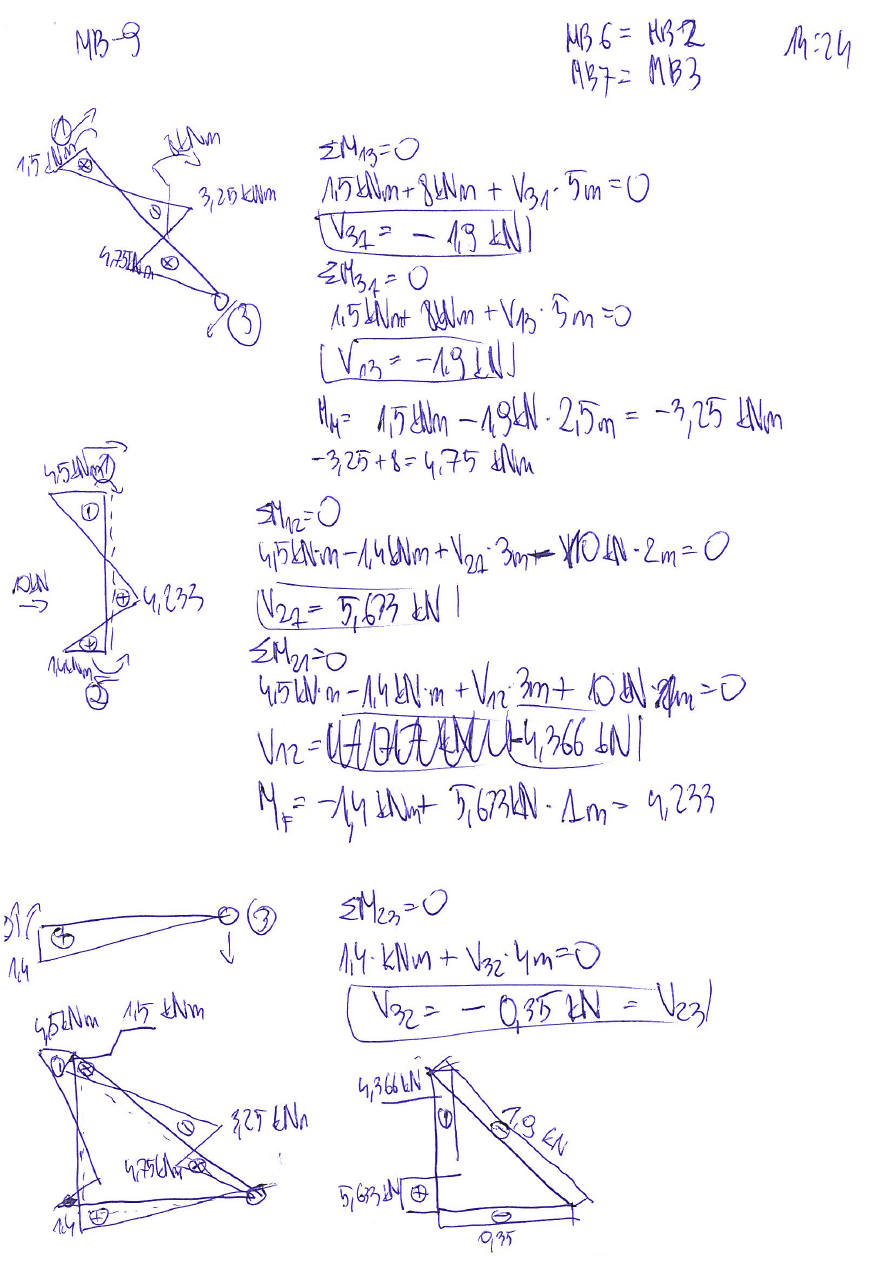 MB-9
MB6 = MB2
MB7 = MB3
M=24
1
1,5 kNm
8 kNm
3,25 kNm
4,75kNm
3
ΣM13=0
1,5kNm + 8kNm + V31 · 5m = 0
V31 = - 1,9 kN
ΣM31 = 0
1,5kNm + 8kNm + V13 · 5m = 0
V13 = -1,9 kN
MM = 1,5kNm - 1,9kN · 2,5m = -3,25 kNm
-3,25+8=4,75 kNm
4,5kNm
1
10kN
4,233
1,4kNm
2
ΣM12=0
4,5kN·m-1,4kNm+V21·3m-10kN·2m=0
V21 = 5,673 kN
ΣM21=0
4,5kN·m-1,4kN·m+V12·3m+10kN·1m=0
V12= -4,366 kN
MF= -1,4kNm+ 5,673kN·1m= 4,233
3
1,4
ΣM23=0
1,4·kNm + V32·4m=0
V32 = - 0,35 kN = V23
4,5kNm
1,5 kNm
3,25 kNm
4,75kNm
1,4
4,366kN
1,9 kN
5,673kN
0,35